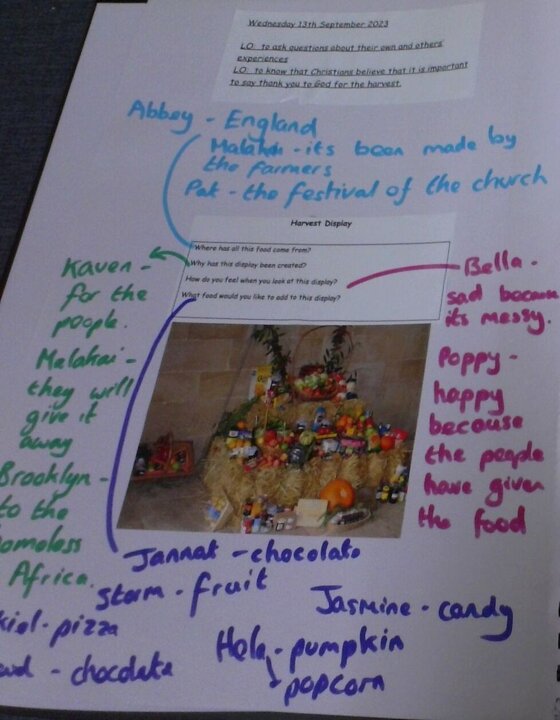 Wednesday 13th September 2023
LO: to ask questions about their own and others'
experiences
LO: to know that Christians believe that it is important
to say thank you to God for the harvest.
Abbey - England
Malahai - its been made by
the farmers
Pat - the festival of the church
Harvest Display
Where has all this food come from?
Why has this display been created?
How do you feel when you look at this display?
What food would you like to add to this display?
Kaven -
for the
people.
Malahai -
they will
give it
away
Brooklyn -
to the
homeless
Africa.
Bella -
sad because
its messy.
Poppy -
happy
because
the people
have given
the food
Jannat - chocolate
Storm - fruit
Jasmine - candy
- pizza
Hela - pumpkin
- chocolate
popcorn